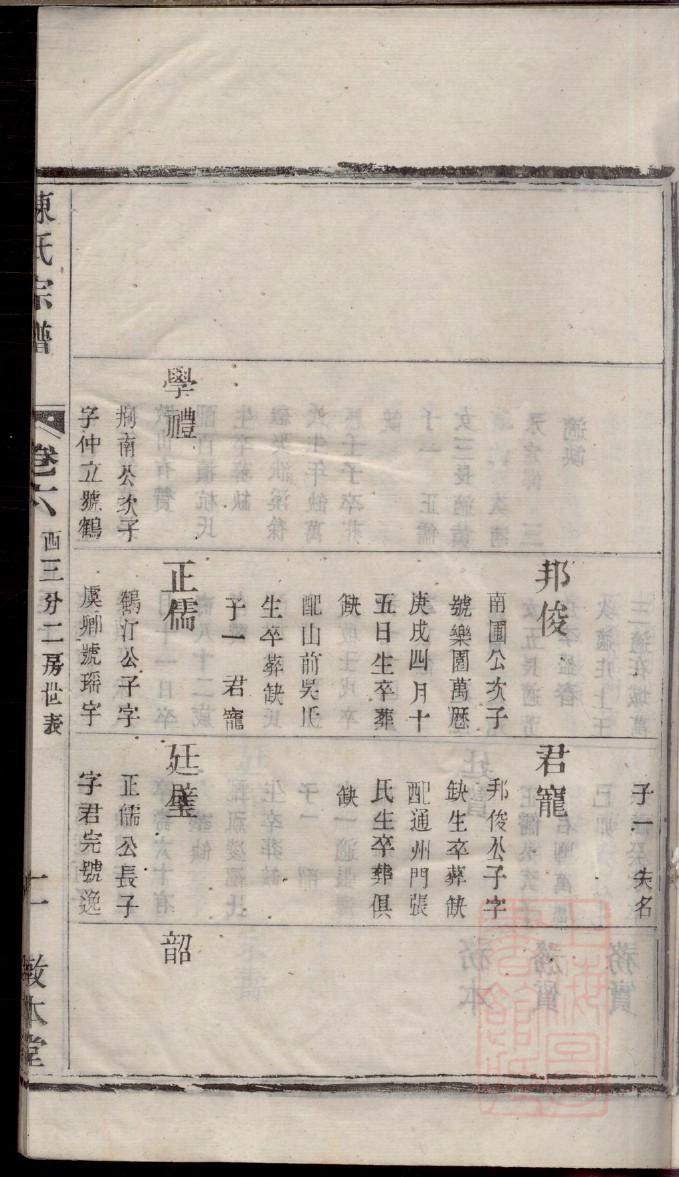 陳氏宗譜
卷六
西三分二房世表
十一
敦本堂
學禮
荊南公次子
字仲立號鶴
邦俊
南圃公次子
號樂園萬歷
庚戌四月十
五日生卒葬
缺
配山前吳氏
生卒葬缺
子一 君寵
正儒
鶴汀公子字
虞卿號瑶宇
子一 失名
君寵
邦俊公子字
缺生卒葬缺
配通州門張
氏生卒葬俱
缺
廷璧
正儒公長子
字君完號逸
韶